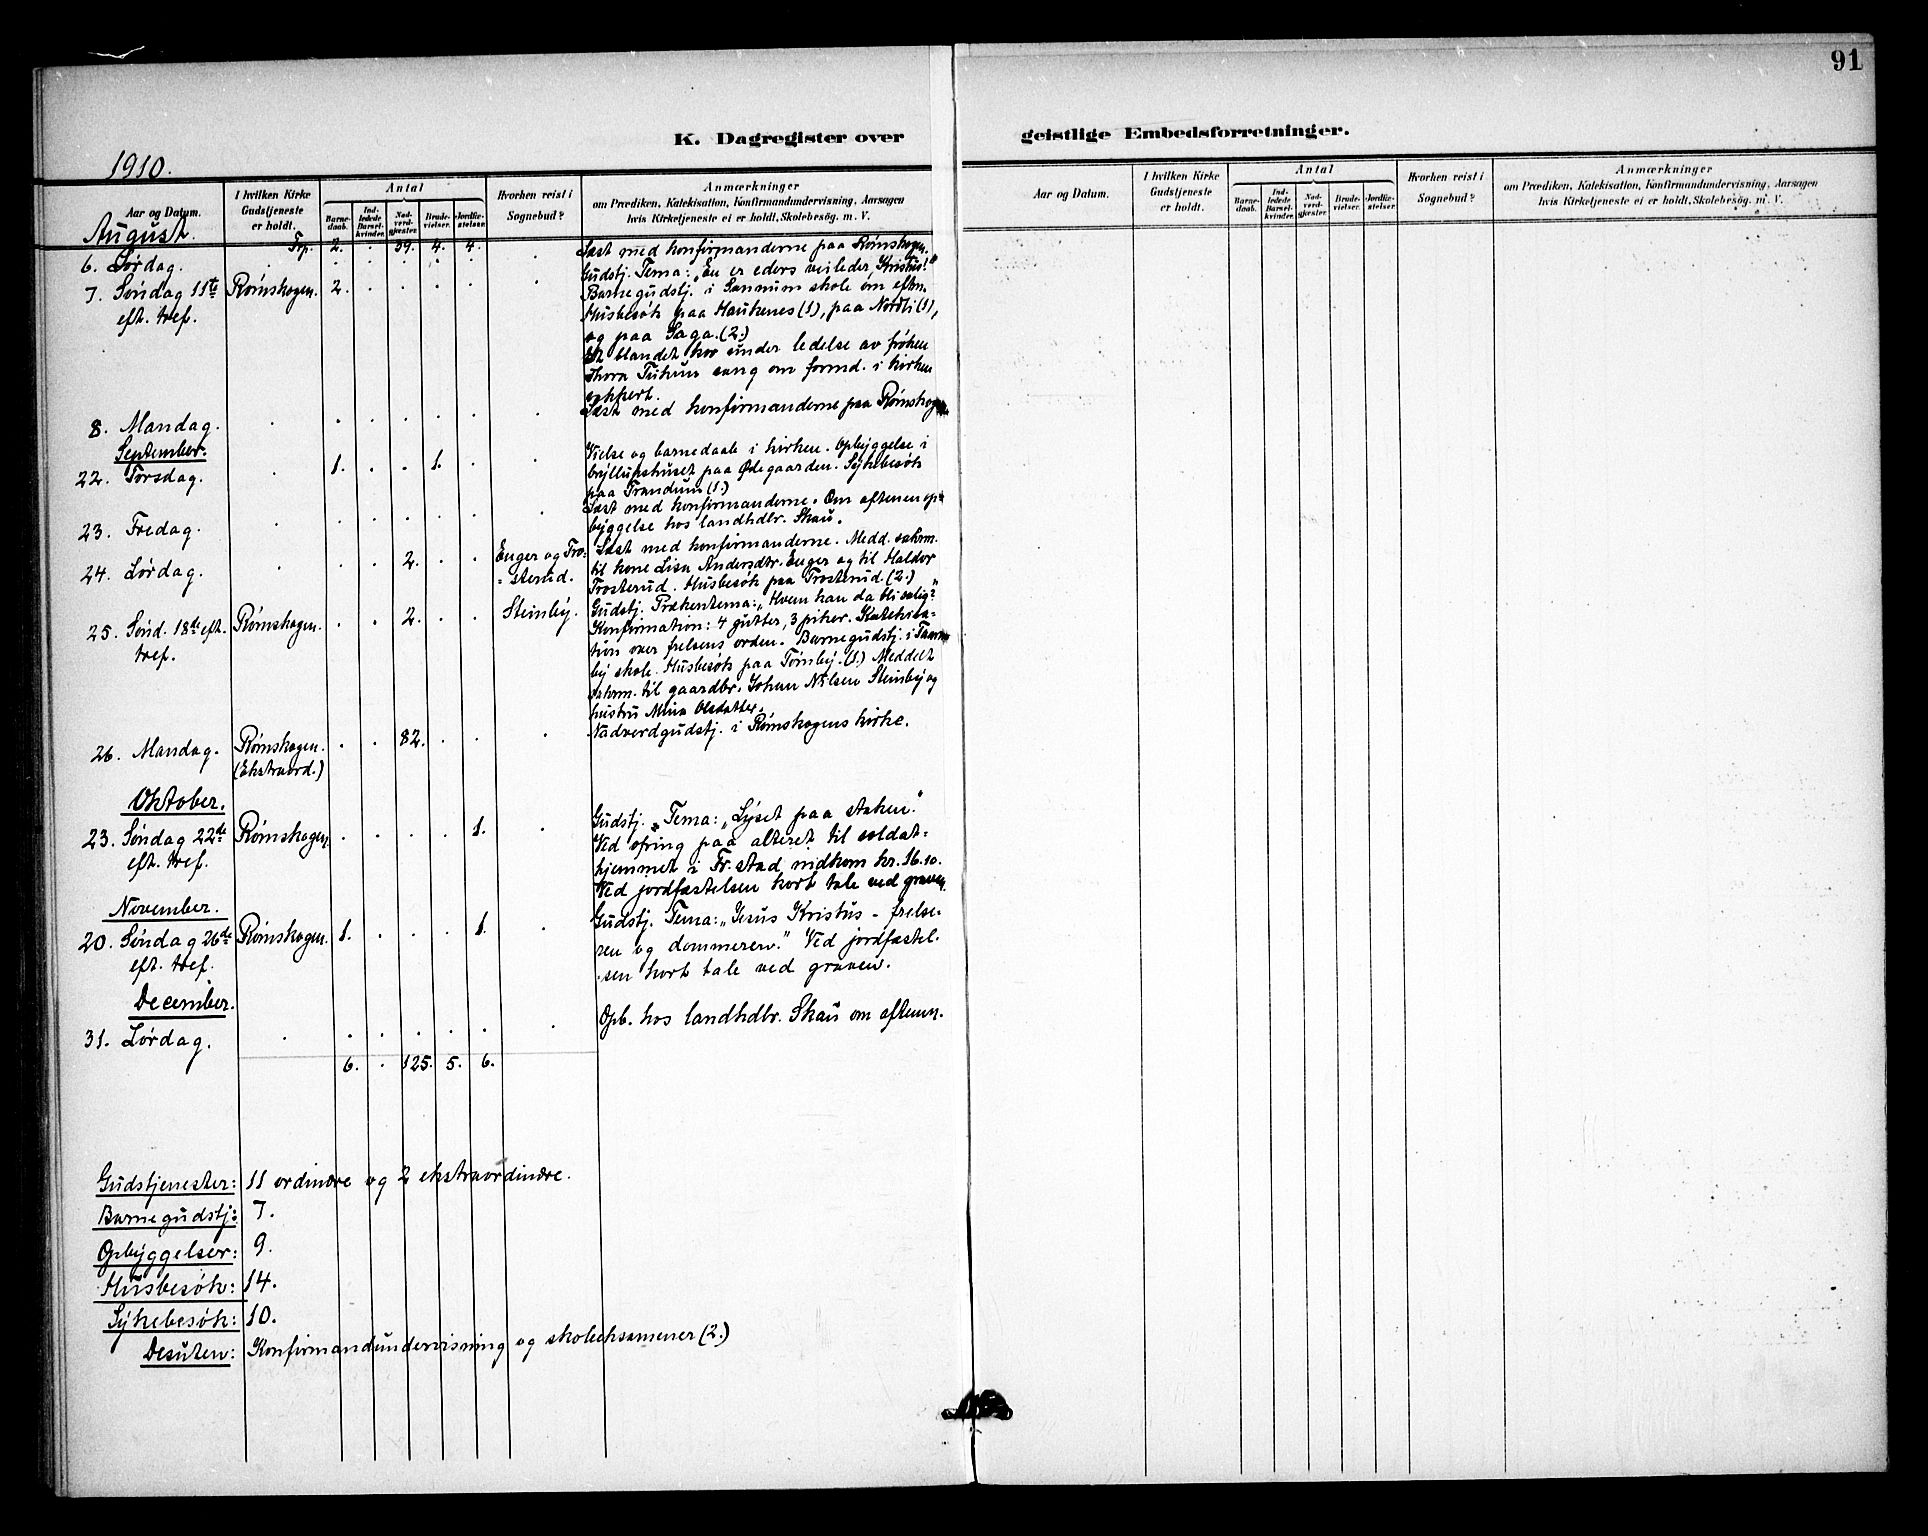 91
K. Dagregister over geistlige Embedsforretninger.
1910.
Aar og Datum.
I hvilken Kirke Gudstjeneste er holdt.
Antal
Barnedaab.
Indledede Barselkvinder.
Nadverdgjester.
Brudevielser.
Jordfæstelser.
Hvorhen reist i Sognebud?
Anmærkninger
om Prædiken, Katekisation, Konfirmandundervisning, Aarsagen
hvis Kirketjeneste ei er holdt, Skolebesøg. m. V.
August.
Trp. 2. . 39. 4. 4.
6. Lørdag. . . . . . . . Læst med konfirmanderne paa Rømskogen.
7. Søndag 11te Rømskogen. 2. . . . . . Gudstj. Tema: "En er eders veileder, Kristus!"
eft. tref. Barnegudstj. i Sannum skole om eftm.
Husbesøk paa Haukenes (1), paa Nordli (1),
og paa Saga. (2.)
Et blandet kor under ledelse av frøken
Thora sang om formd. i kirken
vakkert.
8. Mandag. . . . . . . . Læst med konfirmanderne paa Rømskogen
September.
22. Torsdag. . 1. . . 1. . . Vielse og barnedaab i kirken. Opbyggelse i
bryllupshuset paa Ødegaarden. Sykebesøk
paa Trandum (1.)
23. Fredag. . . . . . . . Læst med konfirmanderne. Om aftenen op=
byggelse hos landhdlr. Skau.
24. Lørdag. . . . 2. . . Enger og Tro= Læst med konfirmanderne. Medd. sakrm.
=sterud. til kone Lisa Andersdtr. Enger og til Haldor
Trosterud. Husbesøk paa Trosterud. (2.)
25. Sønd. 18de eft. Rømskogen. . . 2. . . Steinby. Gudstj. Prækentema: "Hvem kan da bli salig?"
tref. Konfirmation: 4 gutter, 3 piker. Katekisa=
tion over frelsens orden. Barnegudstj. i
by skole. Husbesøk paa Tørnby. (1.) Meddelt
sakrm. til gaardbr. Johan Nilsen Steinby og
hustru Mina Olsdatter.
26. Mandag. Rømskogen. . . 82. . . . Nadverdgudstj. i Rømskogens kirke.
(Ekstraord.)
Oktober.
23. Søndag 22de Rømskogen. . . . . 1. . Gudstj. Tema: "Lyset paa staken."
eft. tref. Ved ofring paa alteret til soldat=
hjemmet i Fr.stad indkom kr. 16.10.
Ved jordfæstelsen kort tale ved graven.
November.
20. Søndag 26de Rømskogen. 1. . . . 1. . Gudstj. Tema: "Jesus Kristus - frelse=
eft. tref. ren og dommeren." Ved jordfæstel=
sen kort tale ved graven.
December.
31. Lørdag. . . . . . . . Opb. hos landhdlr. Skau om aftenen.
6. . 125. 5. 6.
Gudstjenester: 11 ordinære og 2 ekstraordinære.
Barnegudstj: 7.
Opbyggelser: 9.
Husbesøk: 14.
Sykebesøk: 10.
Desuten: Konfirmandundervisning og skoleeksamener (2.)
Aar og Datum.
I hvilken Kirke Gudstjeneste er holdt.
Antal
Barnedaab.
Indledede Barselkvinder.
Nadverdgjester.
Brudevielser.
Jordfæstelser.
Hvorhen reist i Sognebud?
Anmærkninger
om Prædiken, Katekisation, Konfirmandundervisning, Aarsagen
hvis Kirketjeneste ei er holdt, Skolebesøg. m. V.